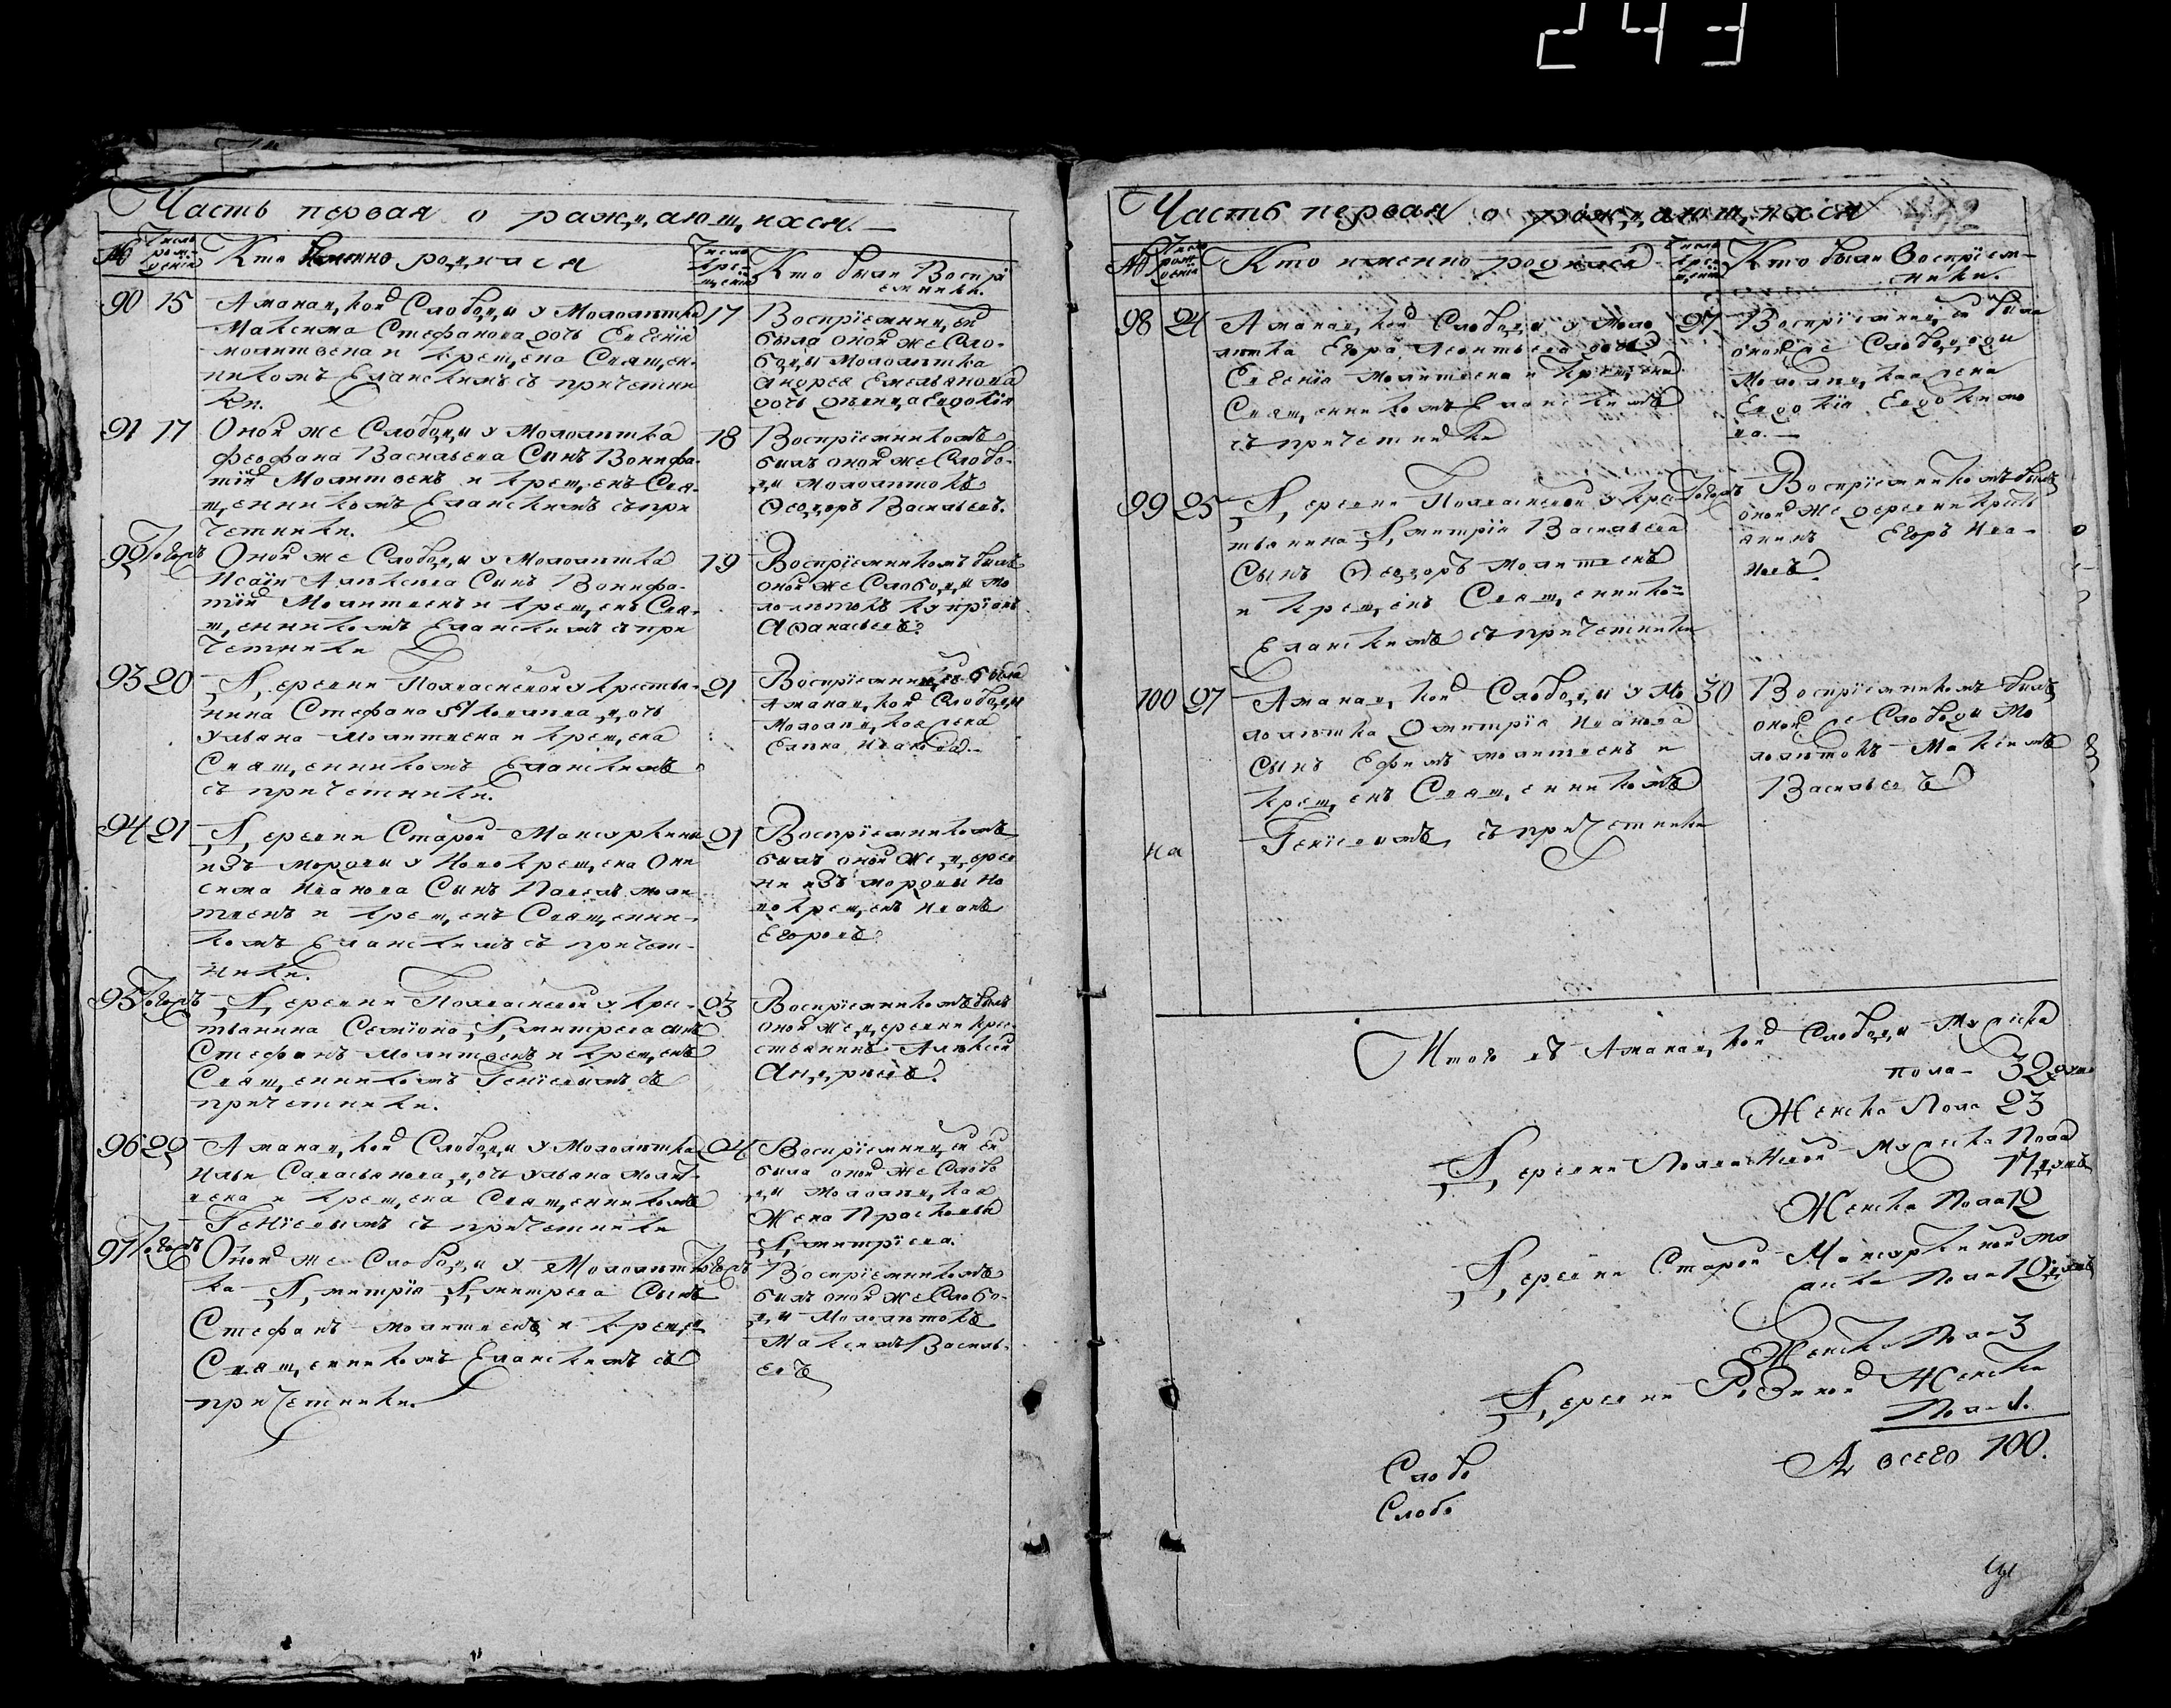 243
Часть первая о раждающихся.
№
Число рождения
Кто именно родился
Число крещения
Кто были Воспрі
емники.
90 15
Аманацкой Слободы у Молоаитка
Максима Стефанова дочь Евгенія
молитвена и крещена Священ-
никомъ Еланскимъ съ причетни
ки.
17
Воспріемницей
была оной же Сло-
боды Молоаитка
Андрея Емельянова
дочь девица Евдокія
91 17
Оной же Слободы у Молоаитка
Феофана Васильева Сынъ Вонифа-
тій Молитвенъ и крещенъ Свя-
щенникомъ Еланскимъ съ при
четники.
18
Воспріемникомъ
былъ оной же Слобо-
ды молоаитокъ
Ѳеодоръ Васильевъ.
92 Тогожъ
Оной же Слободы у Молоаитка
Исаіи Алексѣева Сынъ Вонифа-
тій Молитвенъ и крещенъ Свя-
щенникомъ Еланскимъ съ при
четники
19
Воспріемникомъ былъ
оной же Слободы мо
лоаитокъ Купріянъ
Аѳанасьевъ.
93 20
Деревни Полянской у крестья-
нина Стефана Яковлева дочь
Ульяна Молитвена и крещена
Священникомъ Еланскимъ
съ причетники.
21
Воспріемницей была
Аманацкой Слободы
Молоаицкая жена
Елена Иванова.
94 21
Деревни Старой Мансуркины
изъ мордвы у Новокрещена Они
сима Иванова Сынъ Павелъ моли
твенъ и крещенъ Священни-
комъ Еланскимъ съ причет-
ники.
21
Воспріемникомъ
былъ оной же дерев
ни изъ мордвы Но
вокрещенъ Иванъ
Егоровъ.
95 Тогожъ
Деревни Полянской у крес-
тьянина Семіона Дмитрева сынъ
Стефанъ Молитвенъ и крещенъ
Священникомъ Генісвымъ съ
причетники.
23
Воспріемникомъ былъ
оной же деревни крес-
стьянинъ Алексей
Андреевъ.
96 22
Аманацкой Слободы у Молоаитка
Ильи Савасьянова дочь Ульяна Молит-
вена и крещена Священникомъ
Генісвымъ съ причетники
24
Воспріемницей
была оной же Слобо
ды молоаицкая
Жена Прасковья
Дмитріева.
97 Тогожъ
Оной же Слободы у Молоаит-
ка Дмитрія Дмитрева Сынъ
Стефанъ молитвенъ и крещен
Священникомъ Еланскимъ съ
причетники.
Тогожъ
Воспріемникомъ
былъ оной же Слобо-
ды Молоаитокъ
Максимъ Василь-
евъ
Часть первая о раждающихся
№
Кто именно родился
Кто были Воспріем-
ники.
98 24
Аманацкой Слободы у Моло
аитка Егора Леонтьева дочь
Евгенія Молитвена и крещена
Священникомъ Еланскимъ
съ причетники
27
Воспріемницей была
оной же Слободы
Молоаицкая жена
Евдокія Евдокимо
ва.
99 25
Деревни Полянской у крес
тьянина Дмитрія Васильева
Сынъ Ѳеодоръ молитвенъ
и крещенъ Священнико-
Еланскимъ съ причетники
Тогожъ
Воспріемникомъ былъ
оной же деревни кресть
янинъ Егоръ Ива-
новъ.
100 27
Аманацкой Слободы у Мо
лоаитка Дмитрія Иванова
Сынъ Ефимъ молитвенъ и
крещенъ Священникомъ
Генісвымъ съ причетники
30
Воспріемникомъ былъ
оной же Слободы Мо
лоаитокъ Максимъ
Васильевъ
на
Итого въ Аманацкой Слободы Мужска
пола- 32 душъ
Женска Пола 23
Деревни Полянской Мужска Пола
17 душъ
Женска Пола 12
Деревни Старой Мансуркиной му
жска Пола 12 душъ
Женска Пола 3
Деревни Рѣзиной Женска
Пола 1.
А всего 100.
Слобо
Слобо